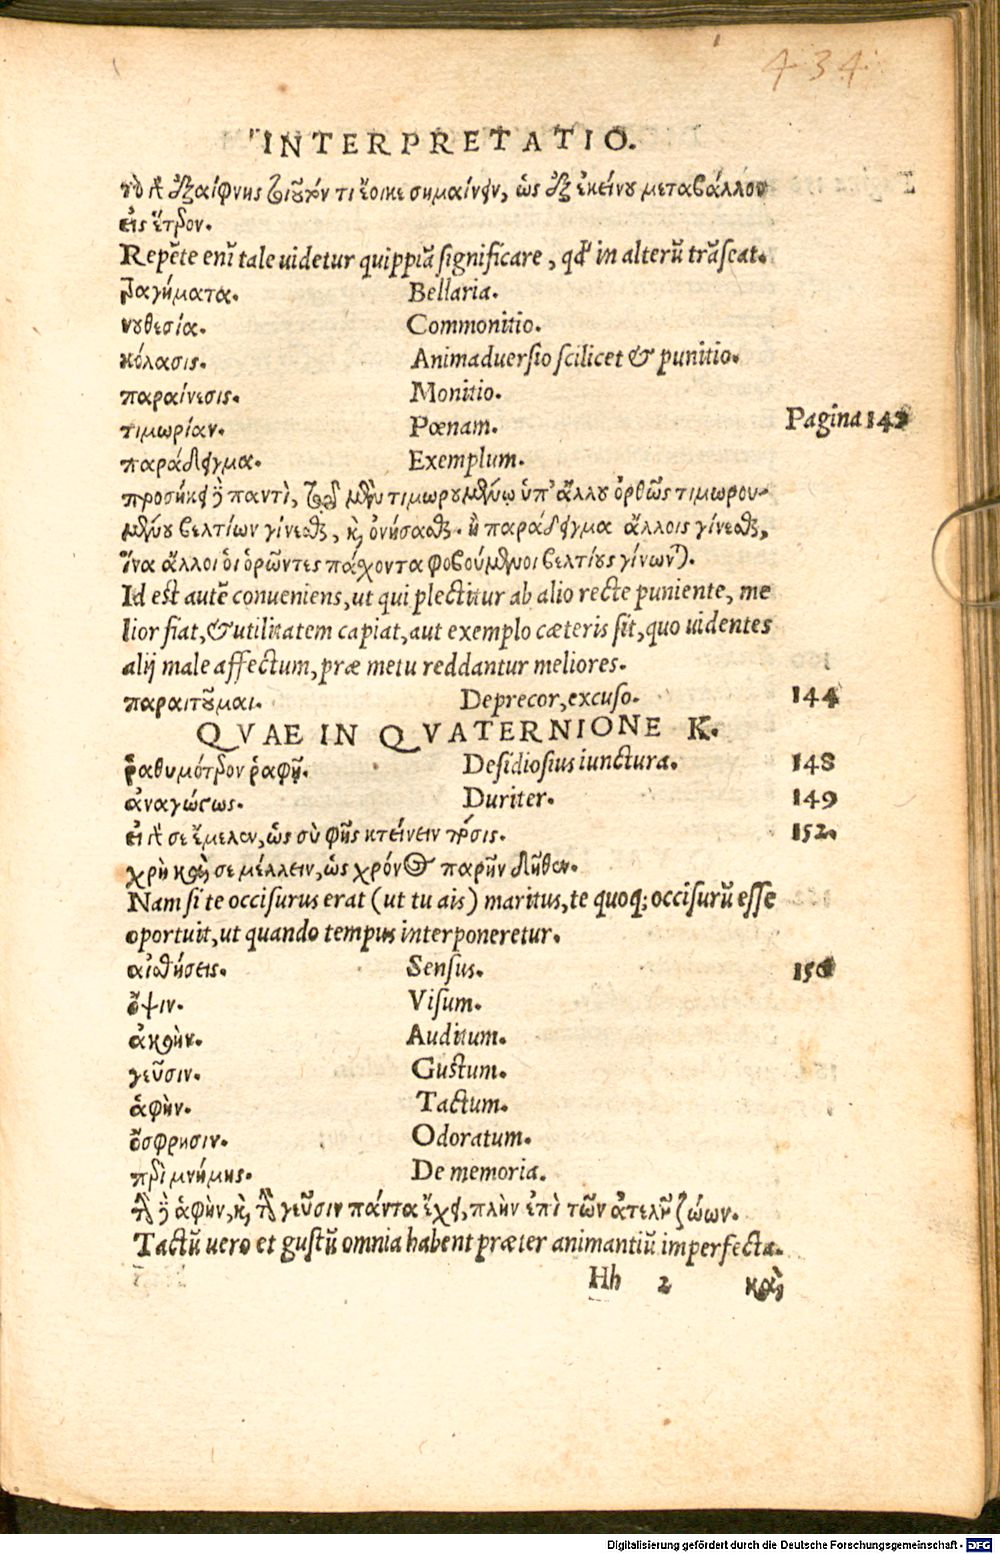 434
INTERPRETATIO.
τὸ γὰρ ἐξαίφνης τοιοῦτόν τι ἔοικε σημαίνειν, ὡς ἐξ ἐκείνου μεταβάλλον
εἰς ἕτερον.
Repēte enī tale uidetur quippiā significare, qđ in alterū trāseat.
τραγήματα. Bellaria.
νουθεσία. Commonitio.
κόλασις. Animaduersio scilicet & punitio.
παραίνεσις. Monitio.
τιμωρίαν. Pœnam. Pagina 142
παράδειγμα. Exemplum.
προσήκει δὲ παντὶ, τῷ ἐν τιμωρίᾳ ὑπ' ἄλλου ὀρθῶς τιμωρου-
μένου βελτίων γίνεσθαι, καὶ ὀνήσασθαι. ἢ παράδειγμα ἄλλοις γίνεσθαι,
ἵνα ἄλλοι οἱ ὁρῶντες πάσχοντα φοβούμενοι βελτίους γίνωνται.
Id est autē conueniens, ut qui plectitur ab alio recte puniente, me
lior fiat, & utilitatem capiat, aut exemplo cæteris sit, quo uidentes
alij male affectum, præ metu reddantur meliores.
παραιτοῦμαι. Deprecor, excuso. 144
QVAE IN QVATERNIONE K.
ῥαθυμότερον ῥαφῇ. Desidiosius iunctura. 148
ἀναγώγως. Duriter. 149
εἰ γάρ σε ἔμελεν, ὡς σὺ φῂς κτείνειν πόσις. 152.
χρὴ καὶ σε μέλλειν, ὡς χρόνος παρῆν δῆθεν.
Nam si te occisurus erat (ut tu ais) maritus, te quoq; occisurū esse
oportuit, ut quando tempus interponeretur.
αἰσθήσεις. Sensus. 156
ὄψιν. Visum.
ἀκοὴν. Auditum.
γεῦσιν. Gustum.
ἁφὴν. Tactum.
ὄσφρησιν. Odoratum.
περὶ μνήμης. De memoria.
τὴν δὲ ἁφὴν, καὶ τὴν γεῦσιν πάντα ἔχει, πλὴν ἐπὶ τῶν ἀτελῶν ζώων.
Tactū uero et gustū omnia habent præter animantiū imperfecta.
Hh 2 καὶ
Digitalisierung gefördert durch die Deutsche Forschungsgemeinschaft - DFG